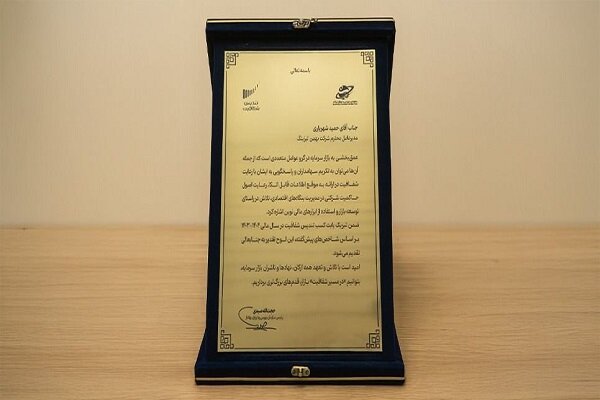 باسمه‌تعالی
تندیس
شفافیت
جناب آقای حمید شهریاری
مدیرعامل محترم شرکت بهمن لیزینگ
عمق‌بخشی به بازار سرمایه در گرو عوامل متعددی است که از جمله
آن‌ها می‌توان به تکریم سهامداران و پاسخگویی به ایشان با رعایت
شفافیت در ارائه به موقع اطلاعات قابل اتکا، رعایت اصول
حاکمیت شرکتی در مدیریت بنگاه‌های اقتصادی، تلاش در راستای
توسعه بازار و استفاده از ابزارهای مالی نوین اشاره کرد.
ضمن تبریک بابت کسب تندیس شفافیت در سال مالی ۱۴۰۲-۱۴۰۳
بر اساس شاخص‌های پیش‌گفته، این لوح تقدیر به جنابعالی
تقدیم می‌شود.
امید است با تلاش و تعهد همه ارکان، نهادها و ناشران بازار سرمایه،
بتوانیم «در مسیر شفافیت» بازار، قدم‌های بزرگ‌تری برداریم.
حجت‌اله صیدی